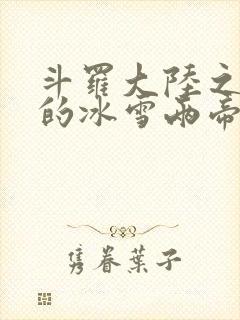 斗羅大陸之
的冰雪兩帝
隽眷葉子